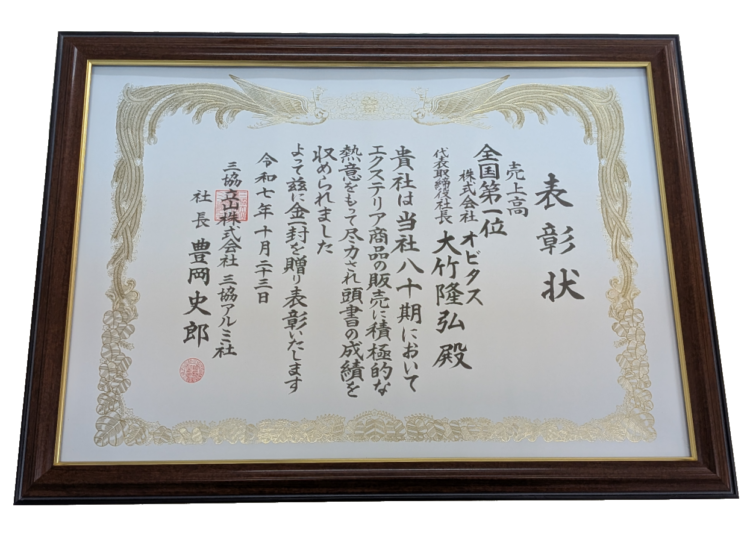 表彰状
売上高
全国第一位
株式会社 オビタス
代表取締役社長 大竹隆弘 殿
貴社は当社八十期において
エクステリア商品の販売に積極的な
熱意をもって尽力され頭書の成績を
収められました
よって茲に金一封を贈り表彰いたします
令和七年十月二十三日
三協立山株式会社 三協アルミ社
社長 豊岡史郎